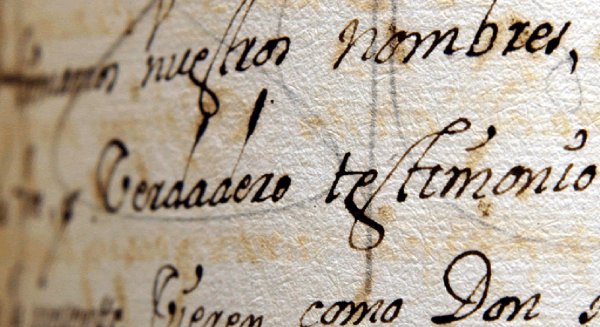 nuestros nombres,
Verdadero testimonio
Vieren como Don